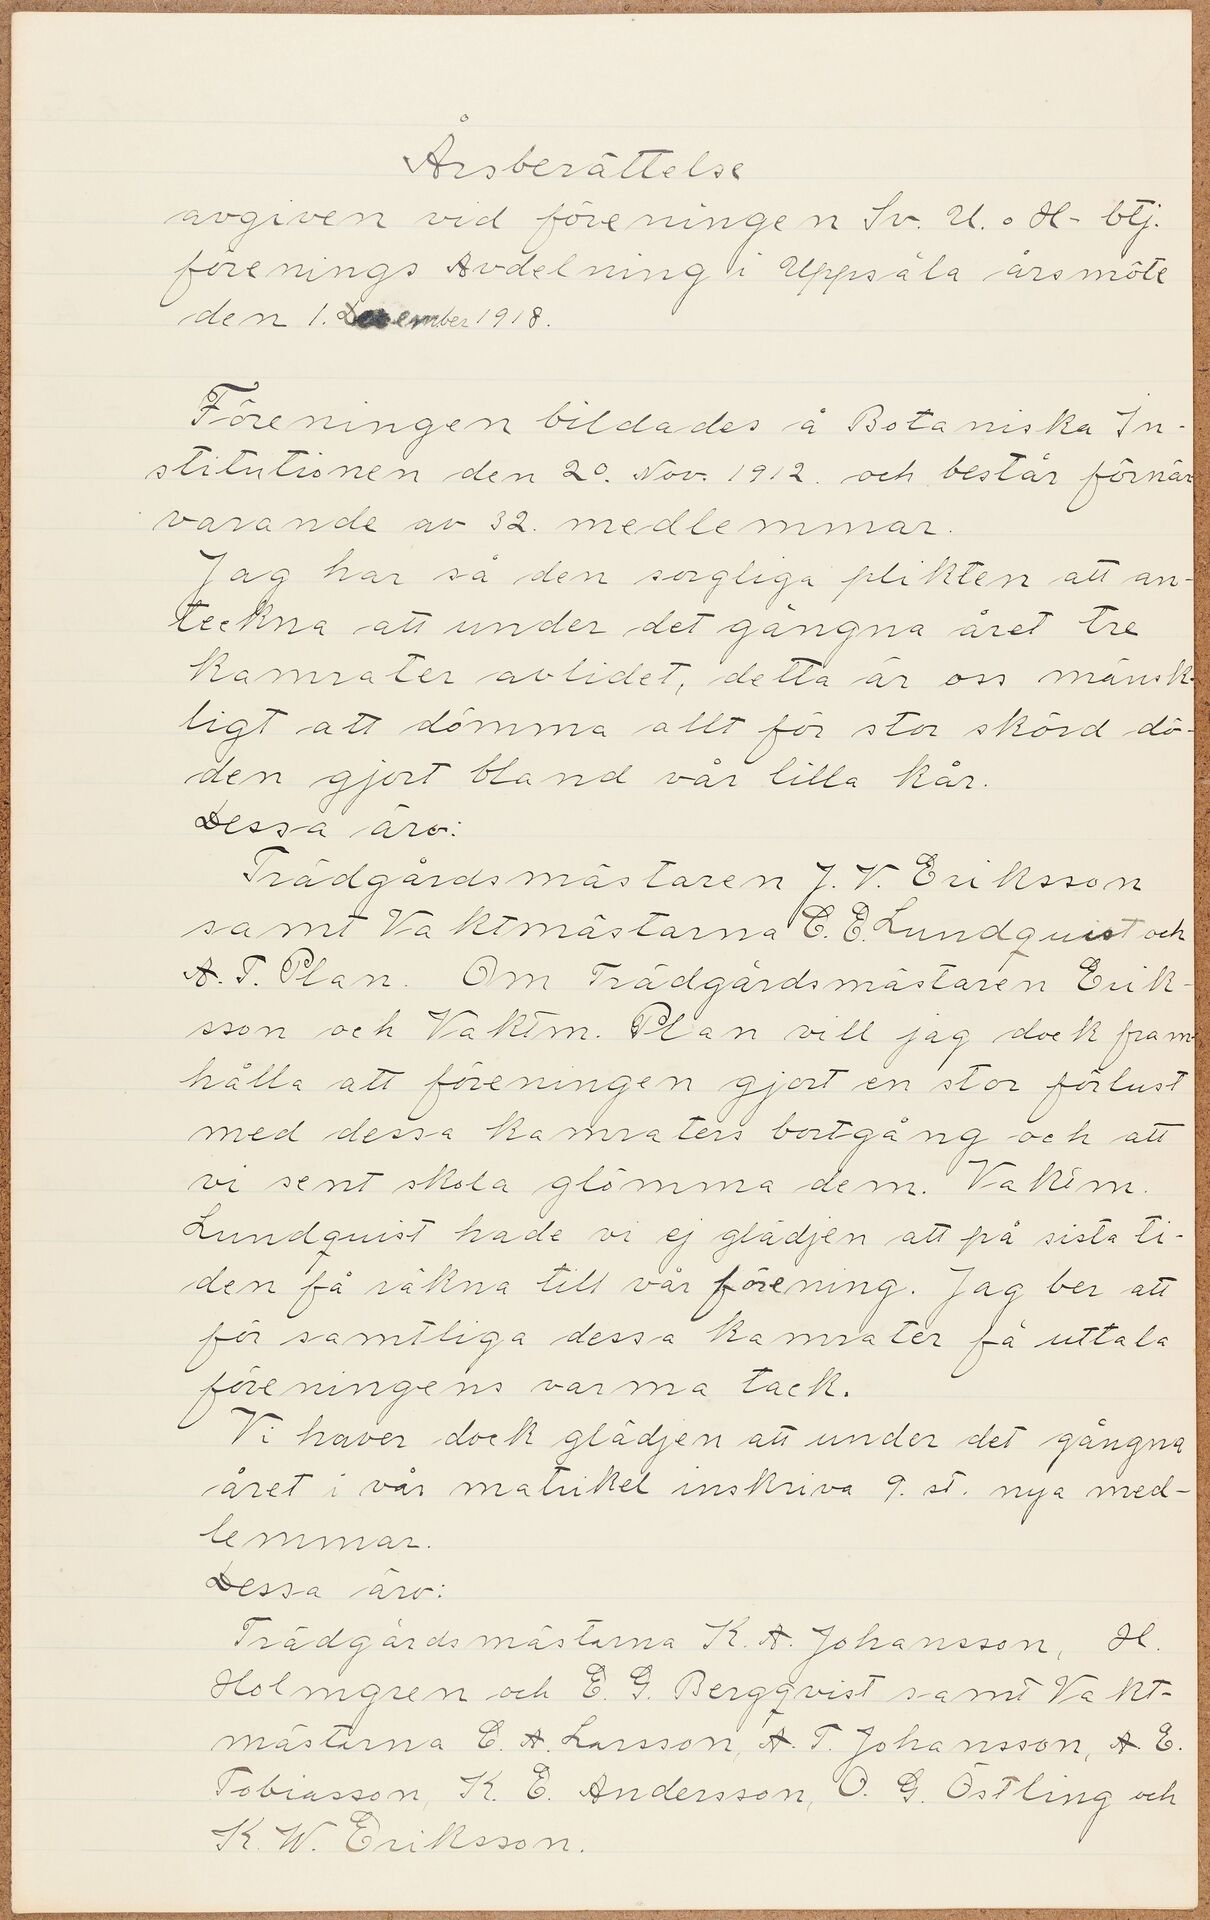 Årsberättelse
avgiven vid föreningen Sv. U. o H- btj.
förenings Avdelning i Uppsala årsmöte
den 1. December 1918.
Föreningen bildades å Botaniska In-
stitutionen den 20. Nov. 1912. och består förnär
varande av 32. medlemmar.
Jag har så den sorgliga plikten att an-
teckna att under det gångna året tre
kamrater avlidet, detta är oss mänsk-
ligt att dömma allt för stor skörd dö-
den gjort bland vår lilla kår.
Dessa äro:
Trädgårdsmästaren J. V. Eriksson
samt Vaktmästarna C. E. Lundquist och
A. T. Plan. Om Trädgårdsmästaren Erik-
sson och Vaktm. Plan vill jag dock fram-
hålla att föreningen gjort en stor förlust
med dessa kamraters bortgång och att
vi sent skola glömma dem. Vaktm.
Lundquist hade vi ej glädjen att på sista ti-
den få räkna till vår förening. Jag ber att
för samtliga dessa kamrater få uttala
föreningens varma tack.
Vi haver dock glädjen att under det gångna
året i vår matrikel inskriva 9. st. nya med-
lemmar.
Dessa äro:
Trädgårdsmästarna K. A. Johansson, H.
Holmgren och E. G. Bergqvist samt Vakt-
mästarna C. A. Larsson, A. T. Johansson, A. E.
Tobiasson, K. E. Andersson, O. G. Östling och
K. W. Eriksson.